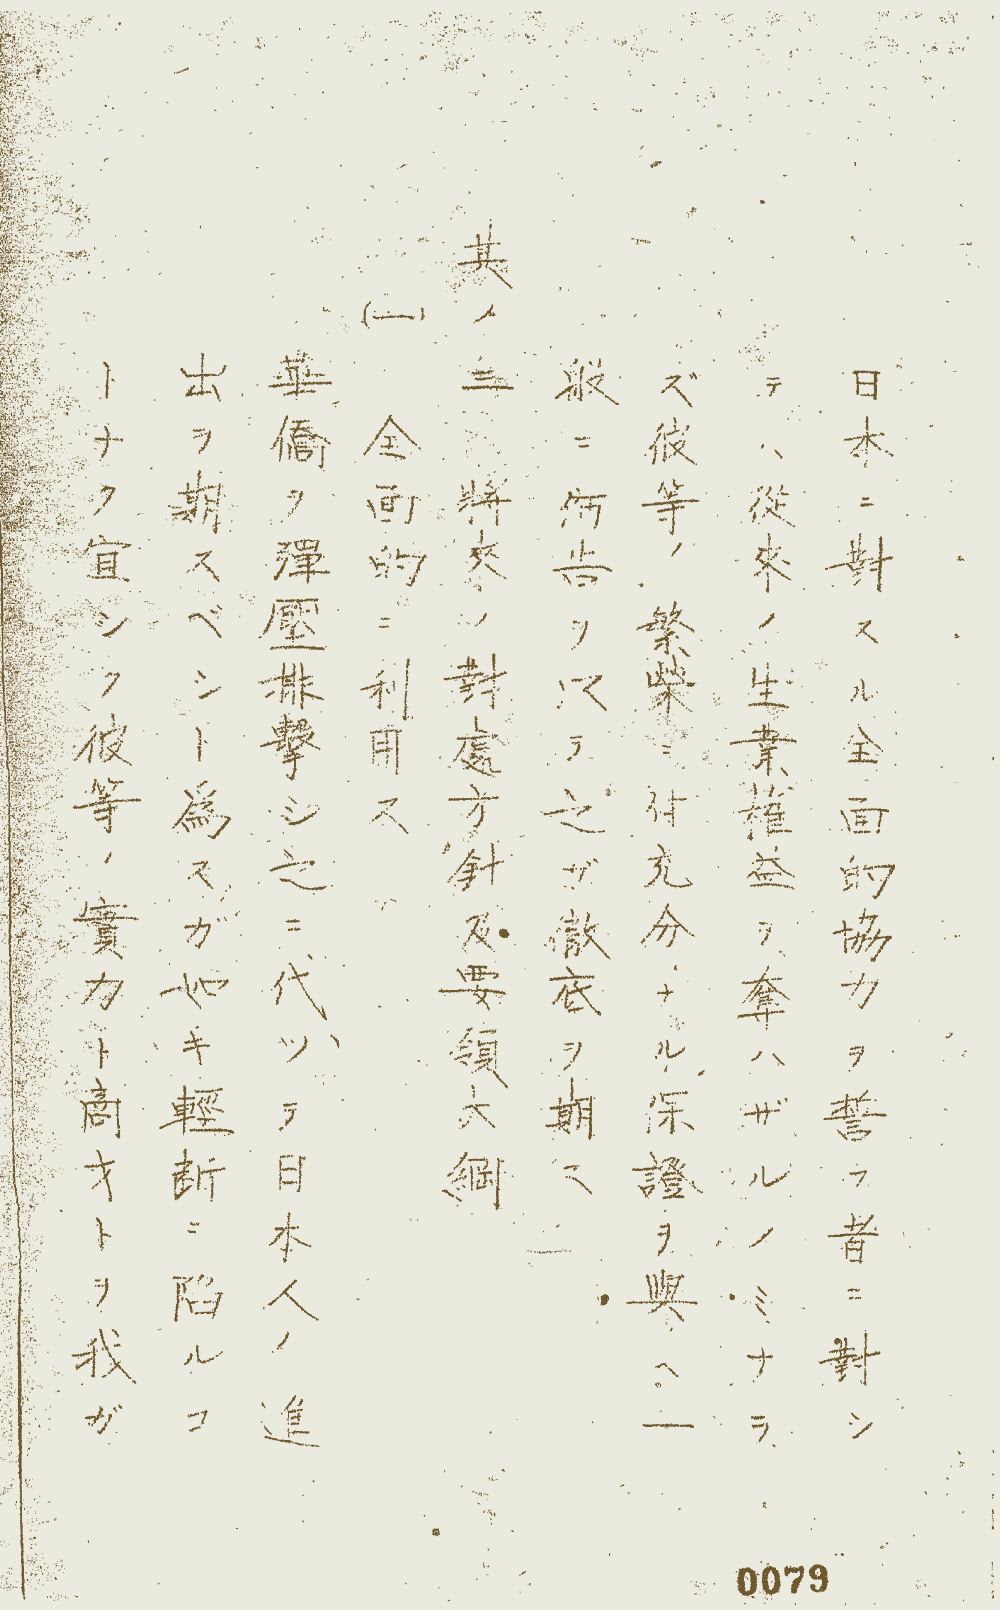 日本ニ對スル全面的協力ヲ誓フ者ニ對シ
テハ從來ノ生業權益ヲ奪ハザルノミナラ
ズ彼等ノ繁榮ニ付充分ナル保證ヲ與ヘ一
般ニ布告ヲ以テ之ガ徹底ヲ期ス
其ノ三 將來ノ對處方針及要領大綱
(一) 全面的ニ利用ス
華僑ヲ彈壓排擊シ之ニ代ツテ日本人ノ進
出ヲ期スベシト爲スガ如キ輕斷ニ陷ルコ
トナク宜シク彼等ノ實力ト商才トヲ我ガ
0079